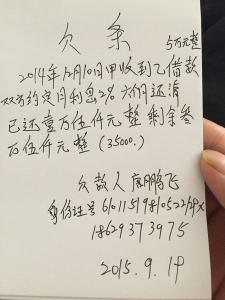 欠条
5万元整
2014年12月10日甲收到乙借款
双方约定月利息2% 六个月还清
已还壹万伍仟元整 剩余叁
万伍仟元整 (35000.)
欠款人 鹏飞
身份证号
18629373975
2015.9.1日